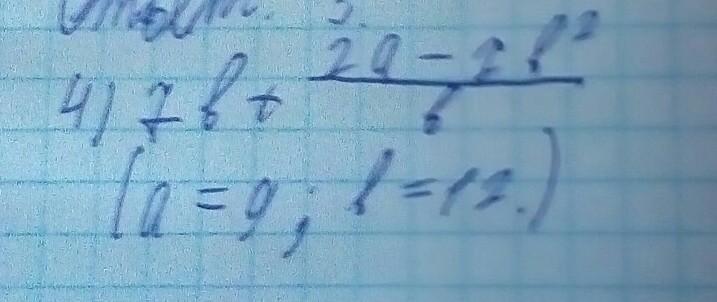 Ответ: 3.
4) 7b + \frac{2a - 7b²}{b}
(a = 9; b = 12.)